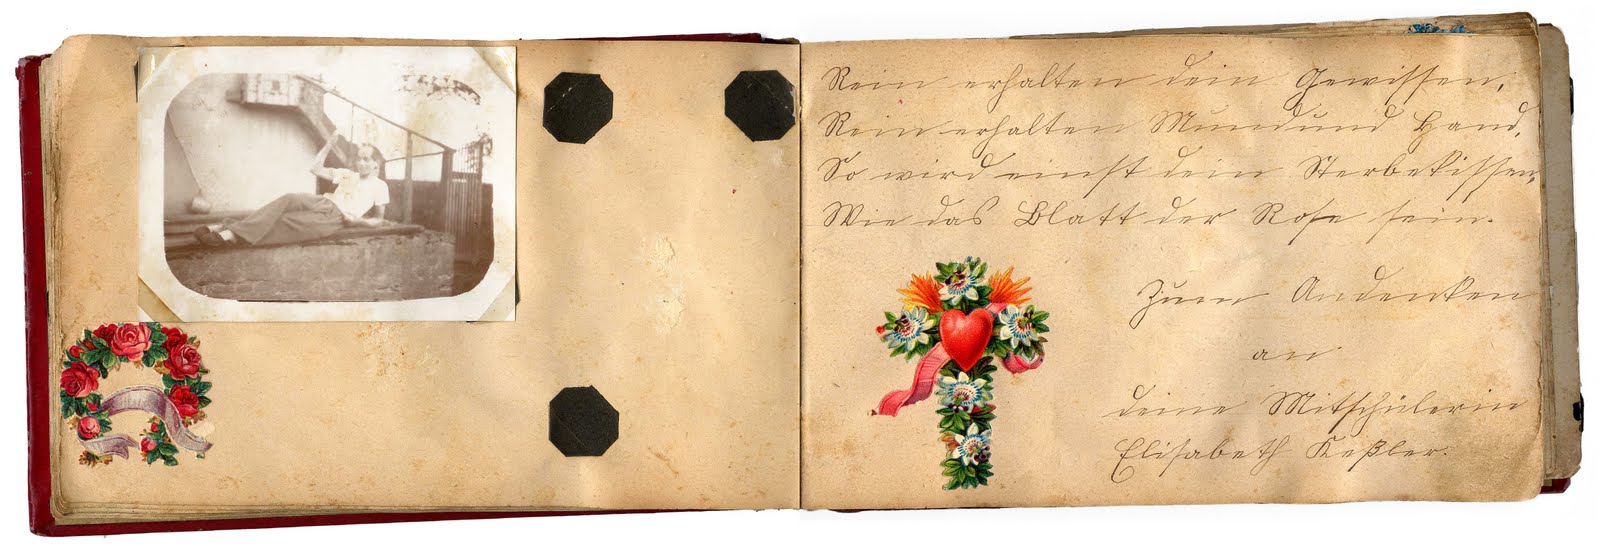 Rein erhalten dein Gewissen,
Rein erhalten Mund und Hand,
So wird einst dein Sterbekissen,
Wie das Blatt der Rose sein.
Zum Andenken
an
deine Mitschülerin
Elisabeth Keßler.